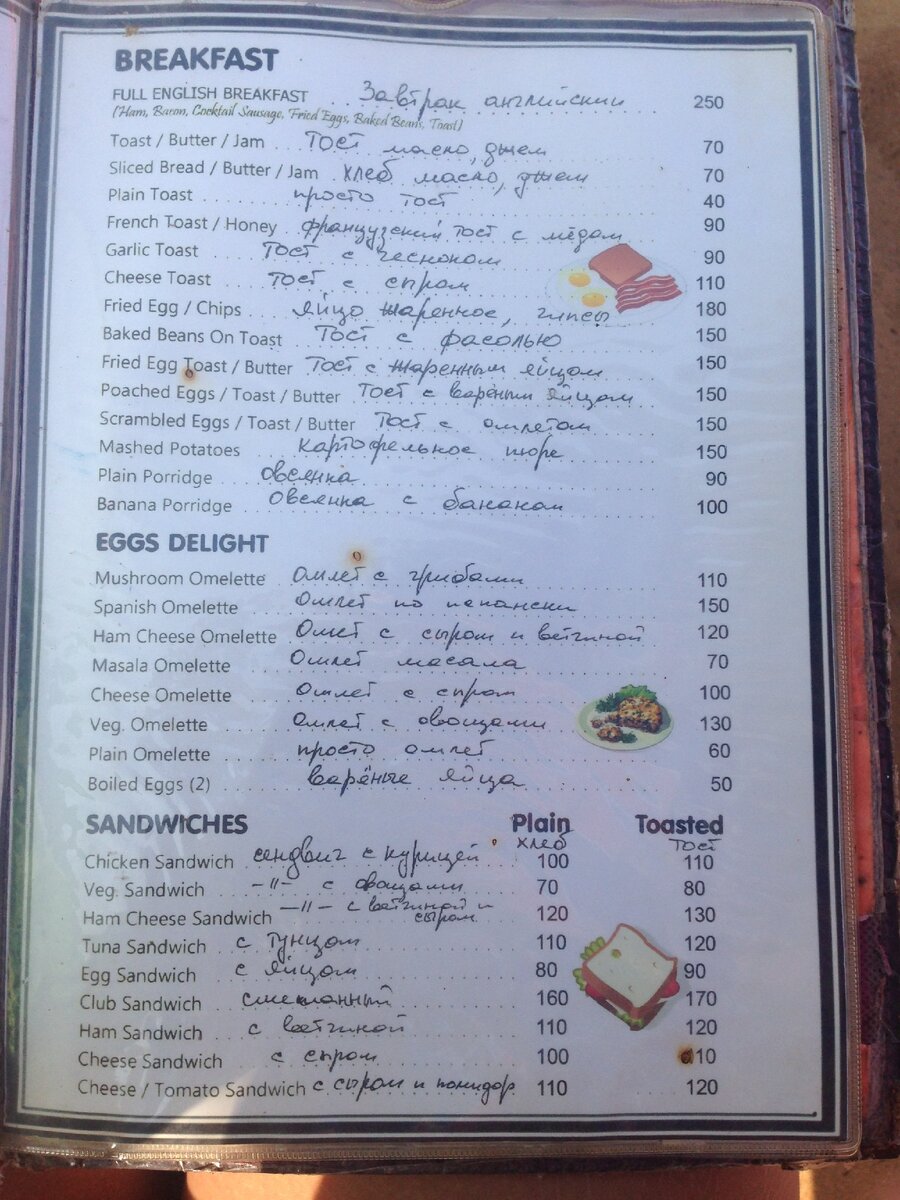 BREAKFAST
FULL ENGLISH BREAKFAST Завтрак английский 250
(Ham, Bacon, Cocktail Sausage, Fried Eggs, Baked Beans, Toast)
Toast / Butter / Jam Тост масло, джем 70
Sliced Bread / Butter / Jam хлеб масло, джем 70
Plain Toast просто тост 40
French Toast / Honey французский тост с мёдом 90
Garlic Toast Тост с чесноком 90
Cheese Toast Тост с сыром 110
Fried Egg / Chips яйцо жаренное, чипсы 180
Baked Beans On Toast Тост с фасолью 150
Fried Egg Toast / Butter Тост с жаренным яйцом 150
Poached Eggs / Toast / Butter Тост с варёным яйцом 150
Scrambled Eggs / Toast / Butter Тост с омлетом 150
Mashed Potatoes картофельное пюре 150
Plain Porridge овсянка 90
Banana Porridge Овсянка с бананом 100
EGGS DELIGHT
Mushroom Omelette Омлет с грибами 110
Spanish Omelette Омлет по испански 150
Ham Cheese Omelette с сыром и ветчиной 120
Masala Omelette Омлет масала 70
Cheese Omelette Омлет с сыром 100
Veg. Omelette Омлет с овощами 130
Plain Omelette просто омлет 60
Boiled Eggs (2) варёные яйца 50
SANDWICHES Plain Toasted
хлеб Тост
Chicken Sandwich сендвич с курицей 100 110
Veg. Sandwich -//- с овощами 70 80
Ham Cheese Sandwich -//- с ветчиной и сыром 120 130
Tuna Sandwich с тунцом 110 120
Egg Sandwich с яйцом 80 90
Club Sandwich смешанный 160 170
Ham Sandwich с ветчиной 110 120
Cheese Sandwich с сыром 100 110
Cheese / Tomato Sandwich с сыром и помидор 110 120